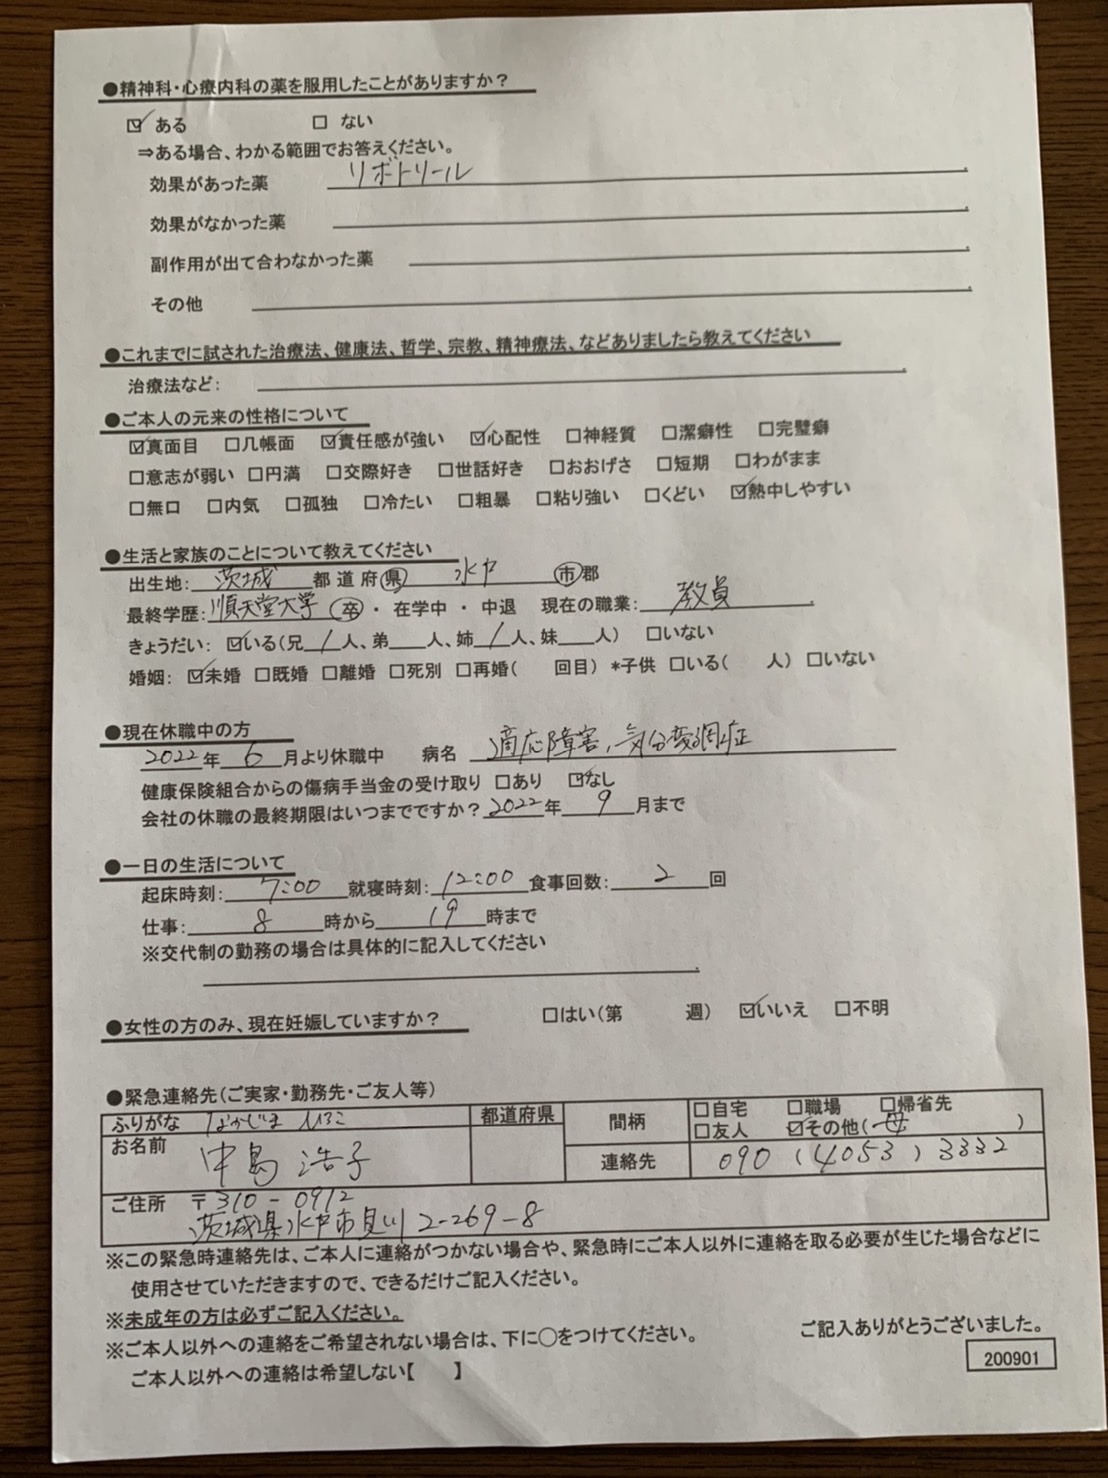 ●精神科・心療内科の薬を服用したことがありますか？
☑ ある □ ない
⇒ある場合、わかる範囲でお答えください。
効果があった薬 リボトリール
効果がなかった薬
副作用が出て合わなかった薬
その他
●これまでに試された治療法、健康法、哲学、宗教、精神療法、などありましたら教えてください
治療法など：
●ご本人の元来の性格について
☑真面目 □几帳面 ☑責任感が強い ☑心配性 □神経質 □潔癖性 □完璧癖
□意志が弱い □円満 □交際好き □世話好き □おおげさ □短期 □わがまま
□無口 □内気 □孤独 □冷たい □粗暴 □粘り強い □くどい ☑熱中しやすい
●生活と家族のことについて教えてください
出生地： 茨城 都 道 府 県 水戸 市 郡
最終学歴： 順天堂大学 卒 ・ 在学中 ・ 中退 現在の職業： 教員
きょうだい： ☑いる（兄 1 人、弟 人、姉 1 人、妹 人） □いない
婚姻： ☑未婚 □既婚 □離婚 □死別 □再婚（ 回目） *子供 □いる（ 人） □いない
●現在休職中の方
2022 年 6 月より休職中 病名 適応障害、気分変調症
健康保険組合からの傷病手当金の受け取り □あり ☑なし
会社の休職の最終期限はいつまでですか？ 2022 年 9 月まで
●一日の生活について
起床時刻： 7:00 就寝時刻： 12:00 食事回数： 2 回
仕事： 8 時から 19 時まで
※交代制の勤務の場合は具体的に記入してください
●女性の方のみ、現在妊娠していますか？ □はい（第 週） ☑いいえ □不明
●緊急連絡先（ご実家・勤務先・ご友人等）
ふりがな なかじま ひろこ 都道府県 間柄 □自宅 □職場 □帰省先
□友人 ☑その他（ 母 ）
お名前 中島 浩子 連絡先 090 （4053）3332
ご住所 〒310-0912
茨城県水戸市見川2-269-8
※この緊急時連絡先は、ご本人に連絡がつかない場合や、緊急時にご本人以外に連絡を取る必要が生じた場合などに
使用させていただきますので、できるだけご記入ください。
※未成年の方は必ずご記入ください。
※ご本人以外への連絡をご希望されない場合は、下に○をつけてください。
ご記入ありがとうございました。
ご本人以外への連絡は希望しない【 】
200901